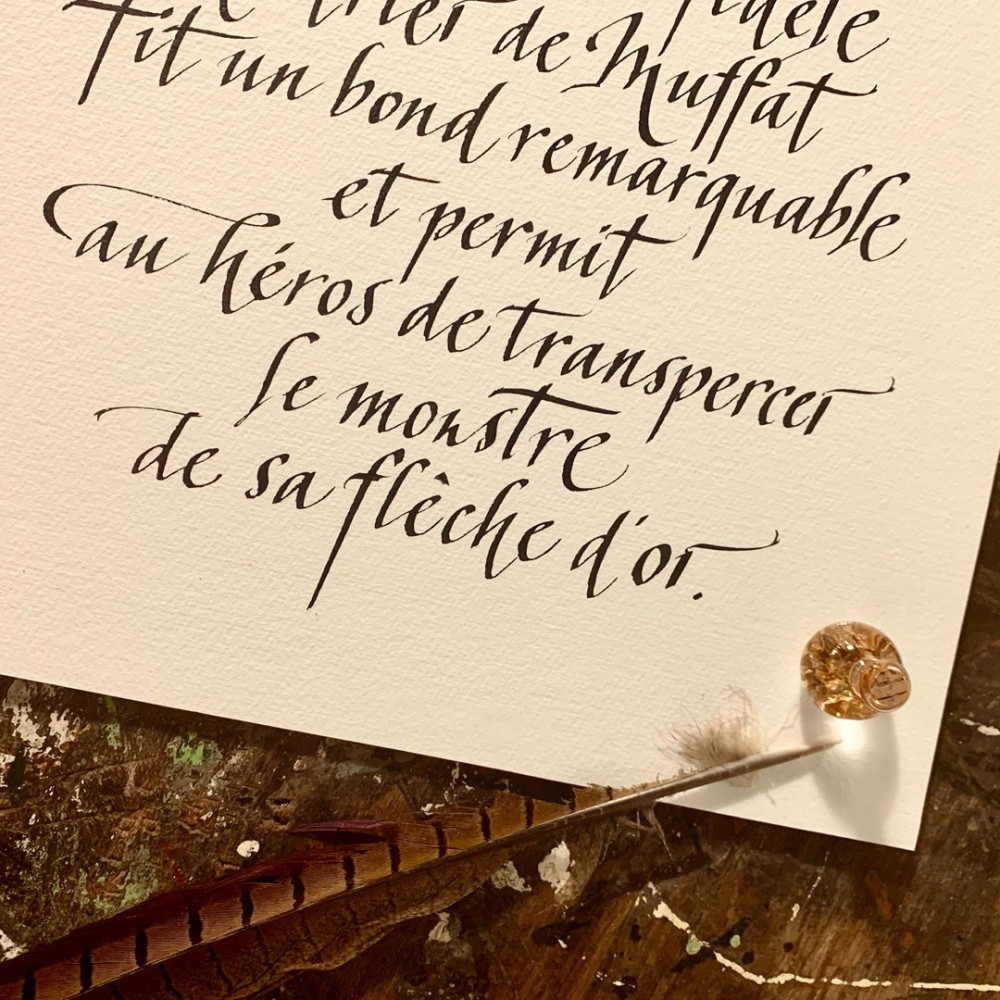 fidèle
de Muffat
Fit un bond remarquable
et permit
au héros de transpercer
le monstre
de sa flèche d'or.